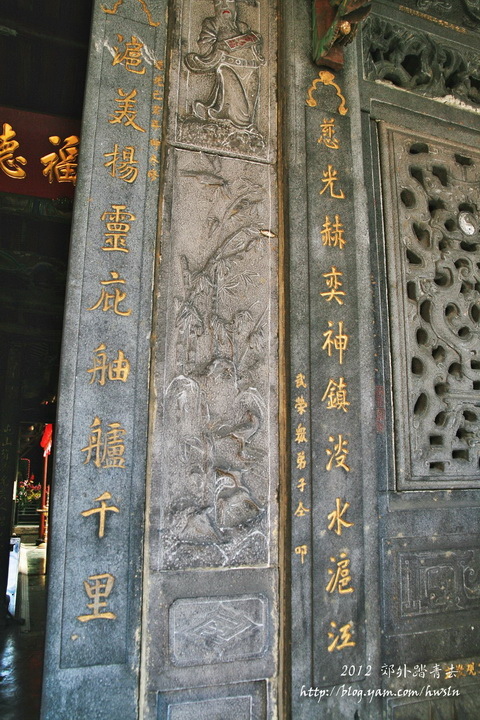 慈光赫奕神鎮淡水滬江
武榮眾弟子仝叩
滬美揚靈庇舳艫千里
福德
2012 郊外踏青去
http://blog.yam.com/hwsln